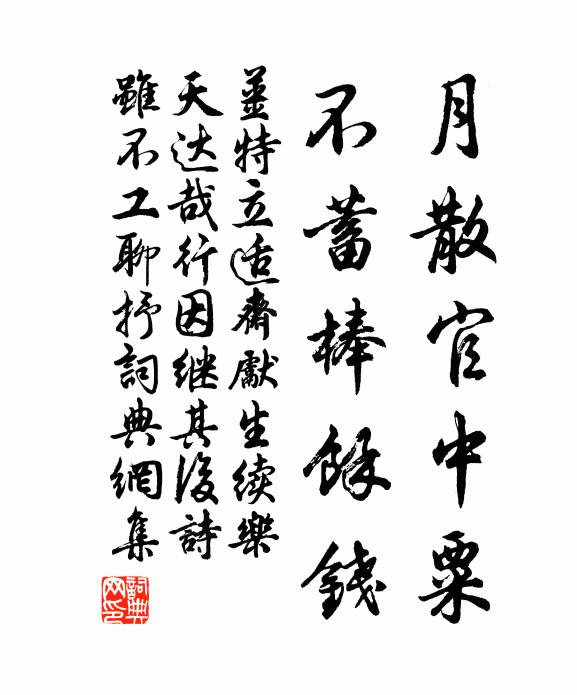 月散官中粟
不蓄棒餘錢
薑特立适齋獻生續樂
天达哉行因继其後詩
雖不工聊抒詞典網集
詞典网印